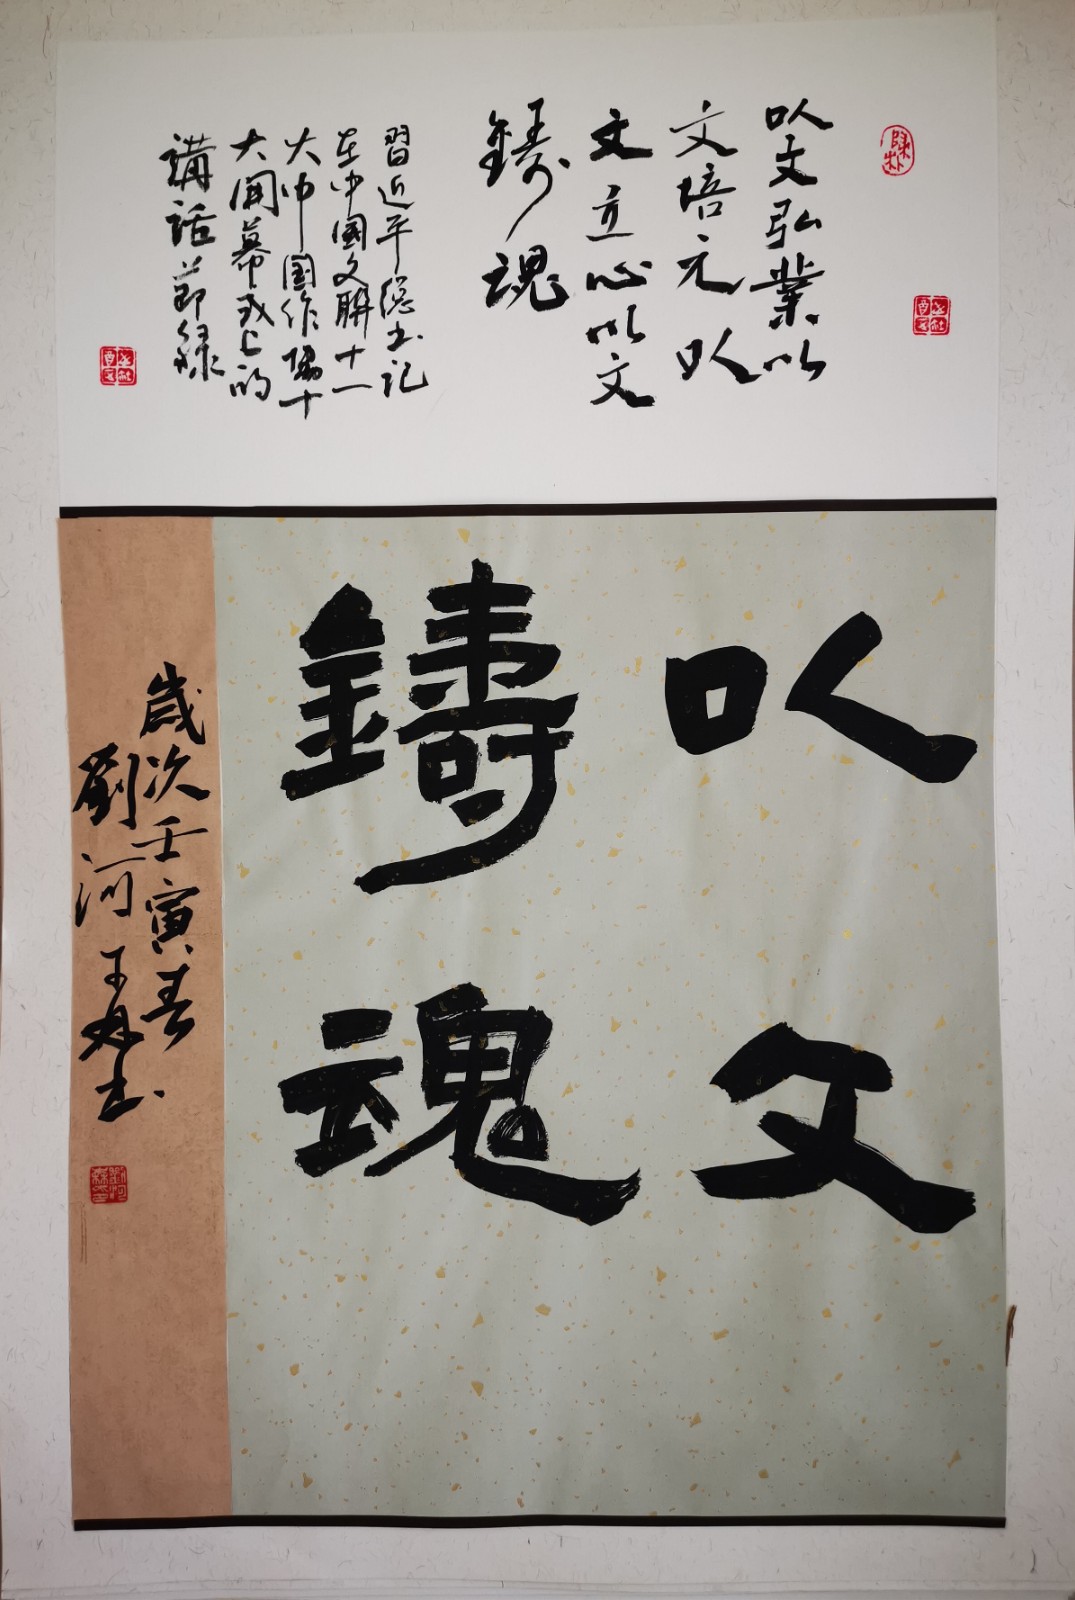 以文弘業以
文培元以
文立心以文
鑄魂
習近平總书记
在中國文聯十一
大中國作協十
大開幕式上的
講話節録
以文
鑄魂
歲次壬寅春
劉河
书